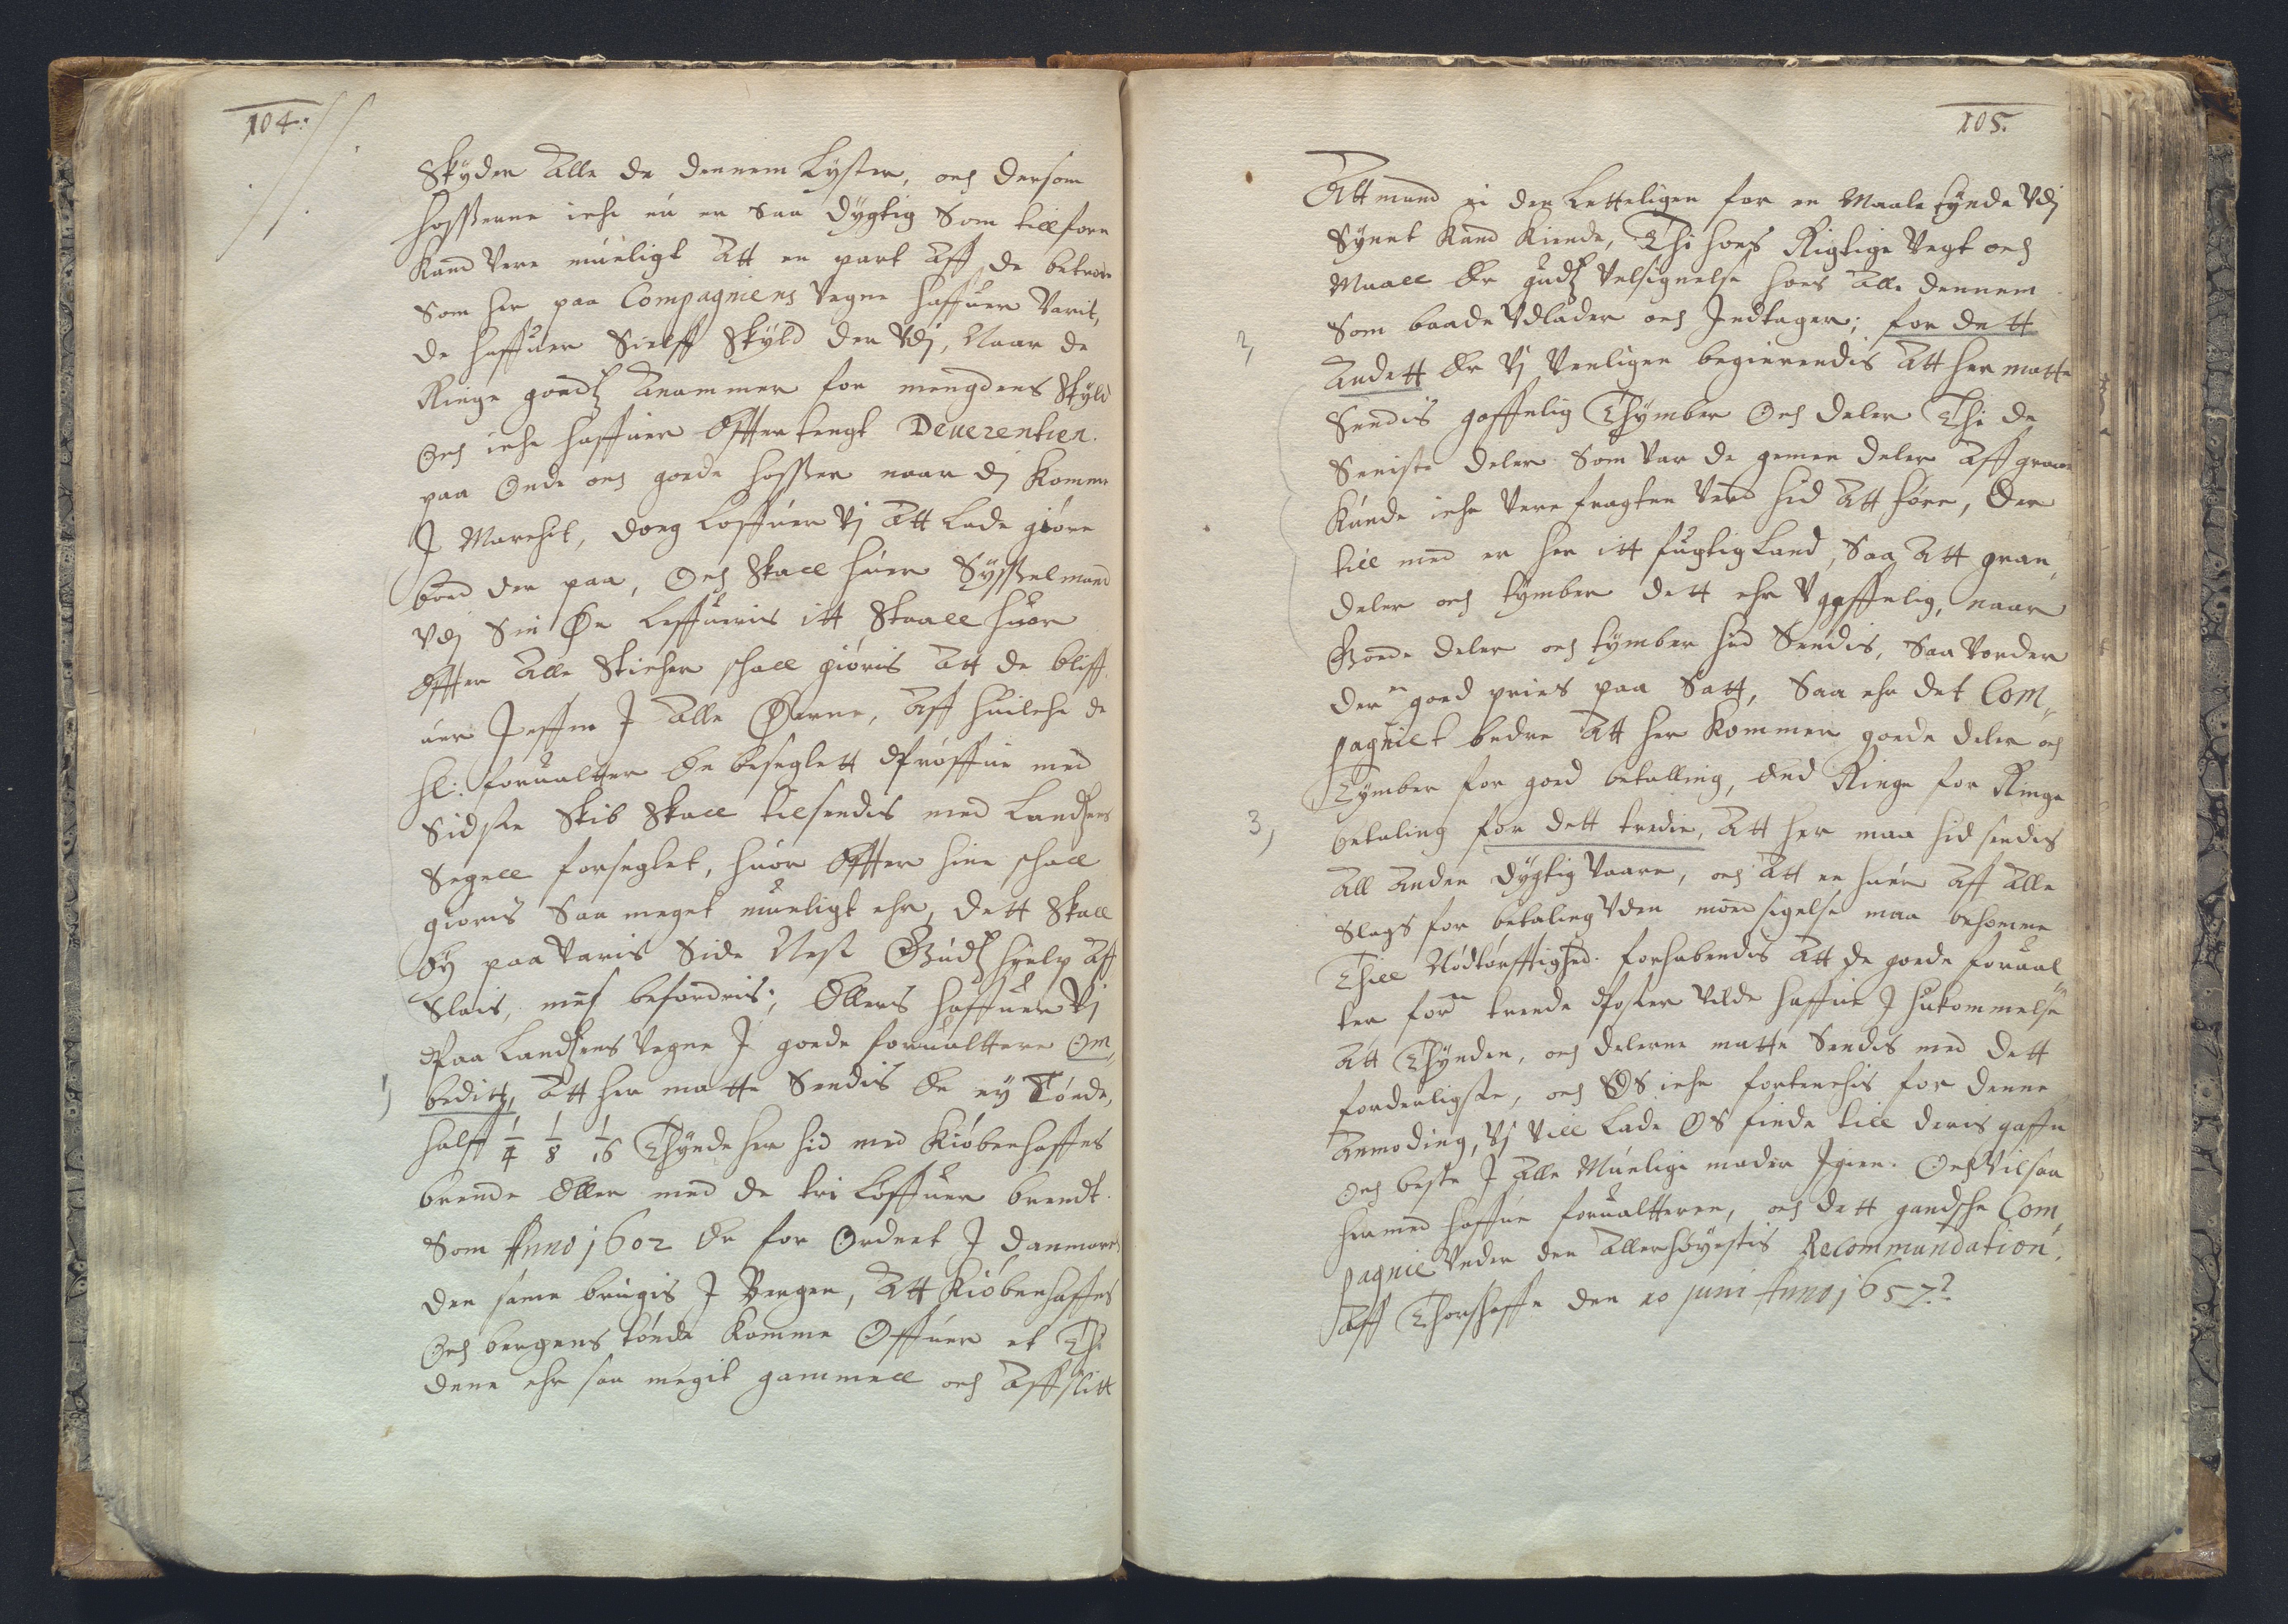 104.
Skyder Alle de dennem Lyster, och dersom
Hosserne iche nu er Saa dygtig Som tillforn
Kand Vere mueligt Att en part Aff de betroede
Som her paa Compagniens Vegne haffuer Varit,
de haffuer Sielff Skyld der Vdj, Naar de
Ringe goedz Anammer for mengdens Skyld
Och iche haffuer Effter tengt Deuerentien.
paa Onde och goede Hosser naar dj kommer
J Marchit, doeg Loffuer Vj Att Lade giøre
boed der paa, Och Skall huer Sysselmand
Vdj Sin Øe Leffueris itt Staall huor
Effter Alle Sticher schall giøris Att de bliff,
uer Jeffen J Alle Øerne, Aff huilche de
Hl: foruualter En beseglett Prøffue med
Sidste Skib Skall tilsendis med Landzens
Segell forseglet, huor Effter hine schall
giøris Saa meget mueligt ehr, dett Skall
Ey paa Voris Side Nest Gudz hielp Aff
Slais, men befordris; Ellers haffuer Vj
Paa Landzens Vegne J goede foruualttere Om,
1) beditz, Att her matte Sendis En ny Tønde,
halff 1/4 1/8 1/16 Thynde her hid med Kiøbenhaffns
brende Eller med de tri Løffuer brendt.
Som Anno 1602 Er for Ordnet J Danmarch
den same brugis J Bergen, Att Kiøbenhaffns
Och bergens tønde komme Offuer et Thi
denne ehr saa megit gammell och Aff slitt
105.
Att mand ei den Letteligen for en Maale tynde Vdj
Synet Kand Kiende, Thi hoes Rigtige Vegt och
Maall Er gudz Velsignelse hoes Alle dennem
Som baade Vdlader och Indtager; for dett
2, Andett Er Vj Venligen begierendis Att her matte
Sendis gaffnlig Thymber Och deler Thi de
Seniste deler Som Var de gemen deler Aff graan
Kunde iche Vere fragten Verd hid Att føre, Der
till med er her itt fugtig Land, Saa Att gran,
deler och tymber dett ehr Vgaffnlig, naar
Goede deler och tymber hid Sendis, Saa Vorder
der en goed priis paa Satt, Saa ehr det Com,,
pagniet bedre Att her Kommer goede deler och
Tymber for goed betalling, End Ringe for Ringe
3, betaling for dett tredie, Att her maa hid sendis
All Anden dygtig Vaare, och Att en huer Aff Alle
Slags for betaling Vden modsigelse maa bekomme
Thill Nødtørfftighed. forhabendis Att de goede foruual
ter forne trende Poster Vilde haffue J hukommelse
Att Thynden, och delerne matte Sendis med dett
forderligste, och OS iche fortenchis for denne
Anmoding, Vj Vill Lade OS finde till deris gaffn
Och beste J Alle Muelige mader Igien. Och Vil saa
hermed haffue foruualtteren, och dett gandsche Com,
pagnie Vnder den Allerhøyestis Recommandation,
Aff Thorshaffn den 20 juni Anno 1657?